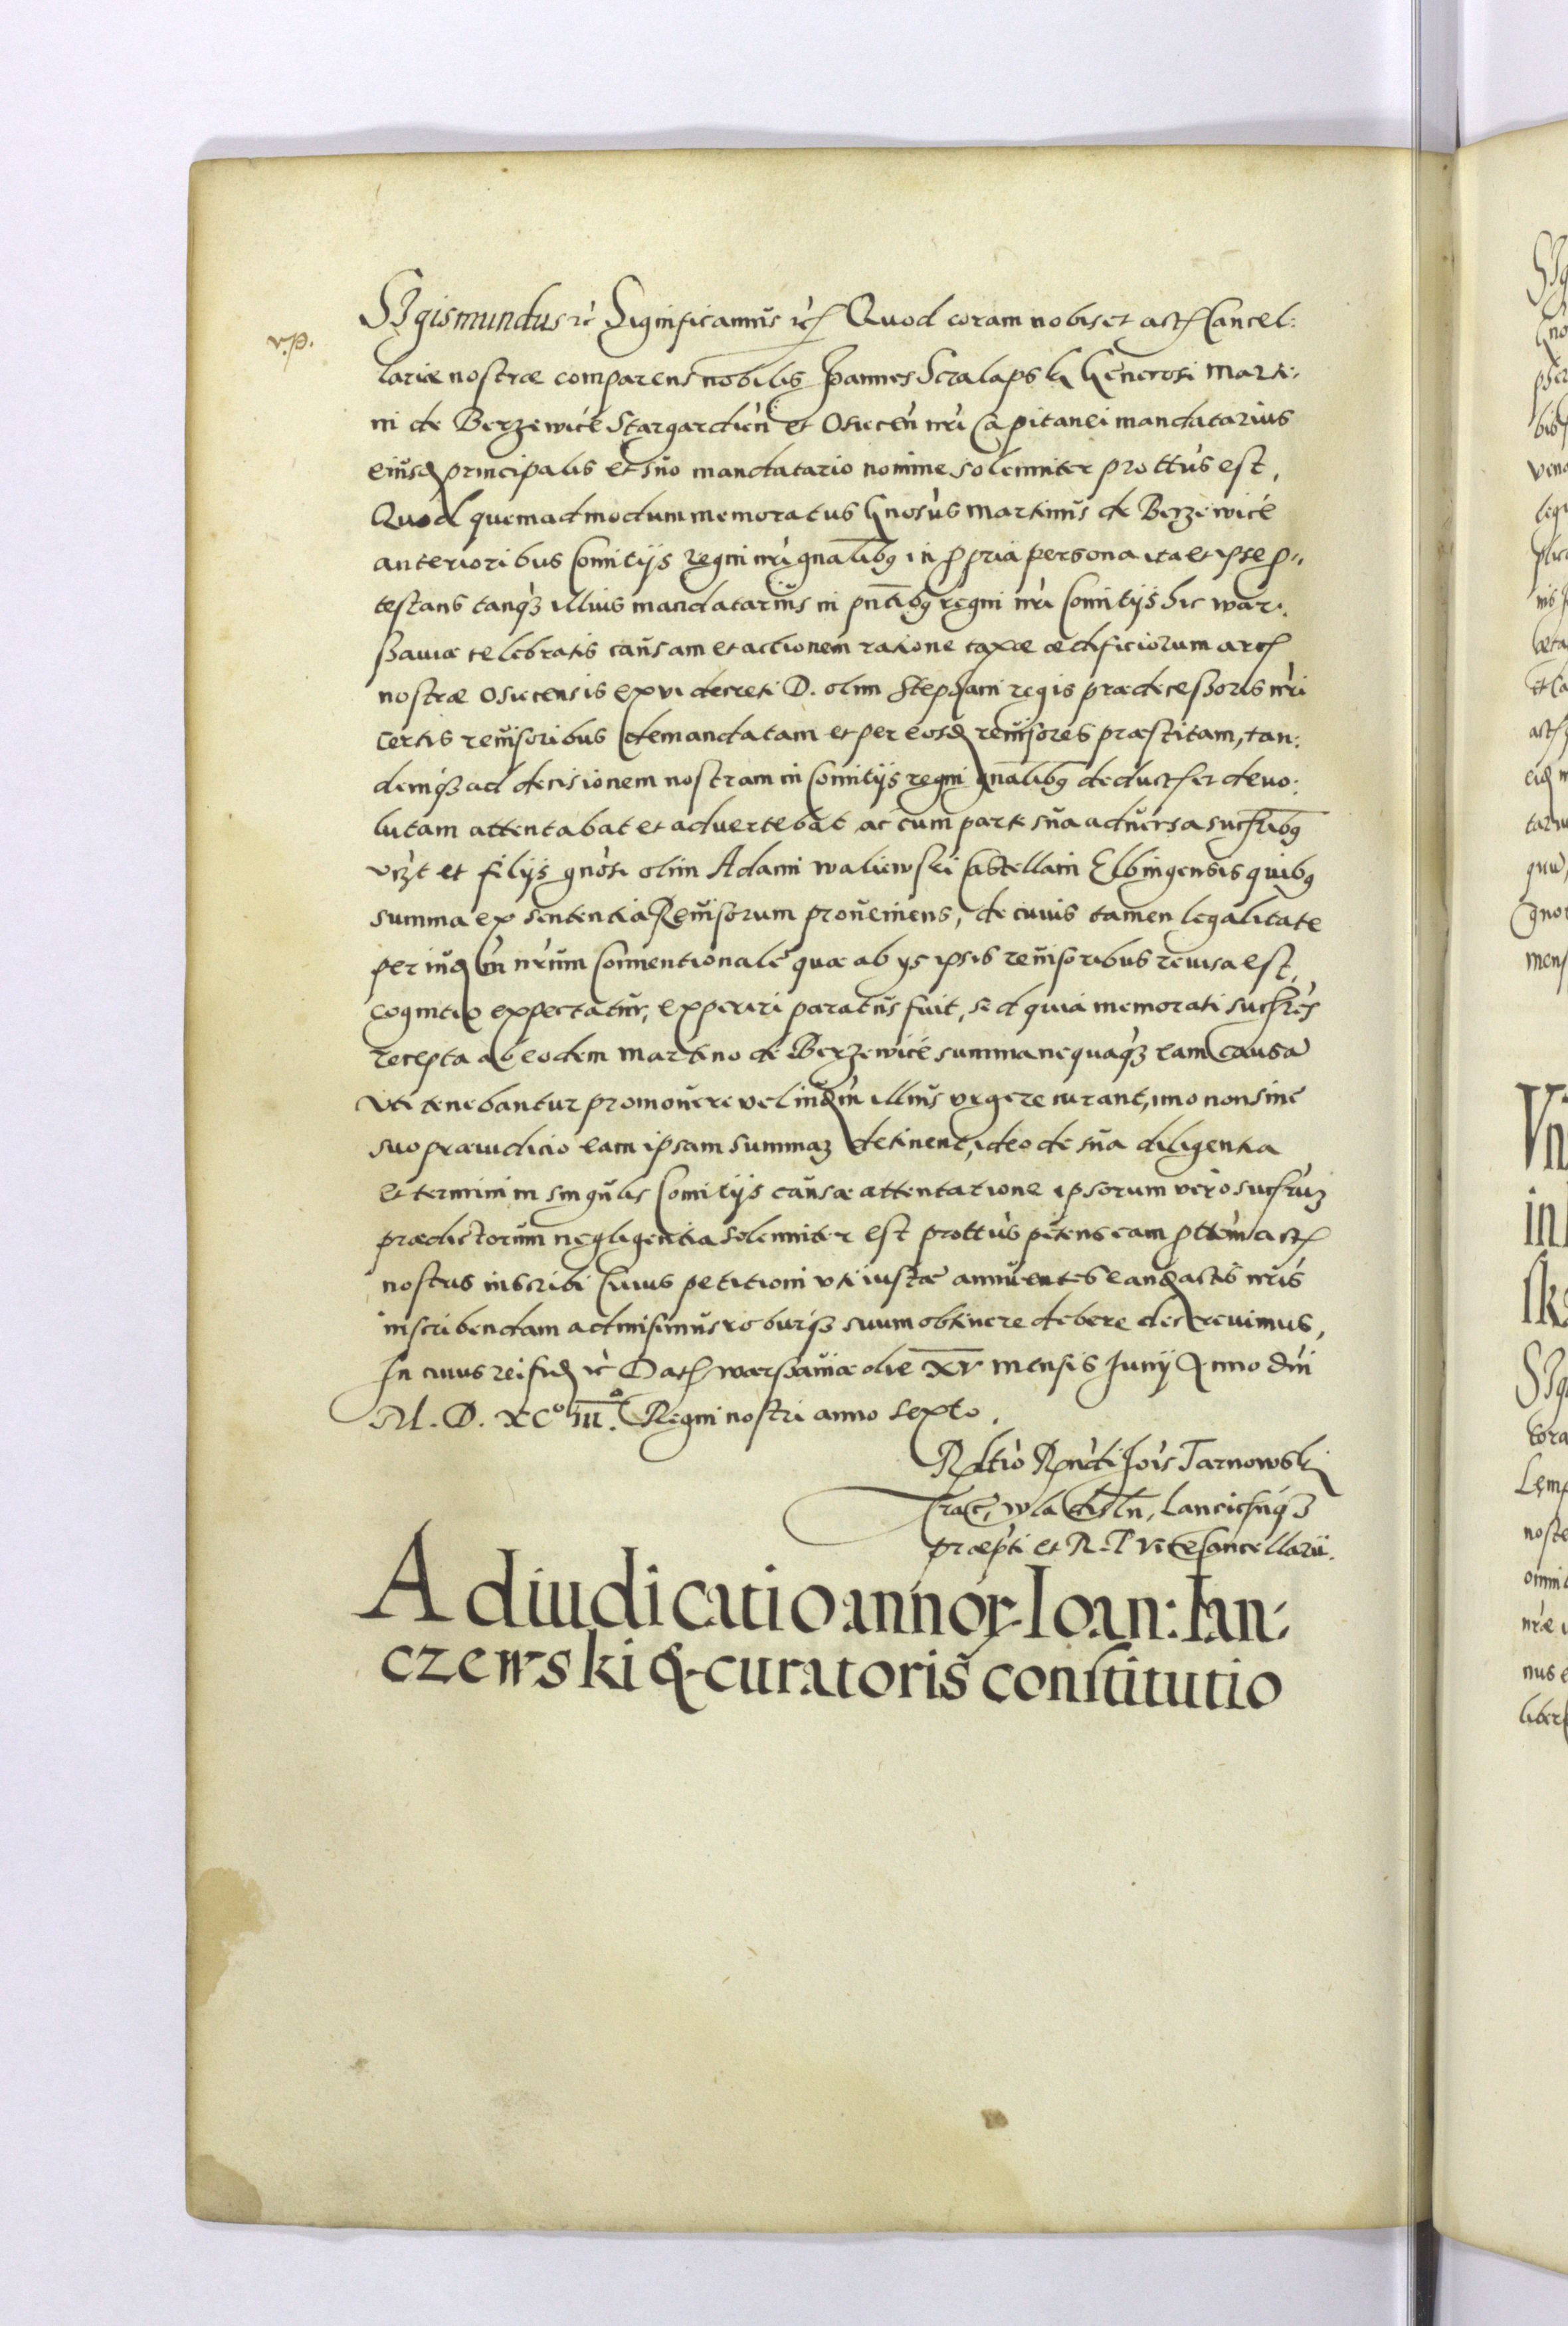 v.p.
Sigismundus ꝛc̀ Significamus ꝛc̀ Quod coram nobis et actꝭ Cancel:
lariæ nostræ comparens nobilis Ioannes Scralaps G Generosi Marti:
ni de Berzewicė Stargardień et Osiecen̄ nr̄i Capitanei mandatarius
eiusd principalis et suo mandatario nomine solemniter prottus est,
Quod quemadmodum memoratus Gnosus Martinus de Berzewicė
anterioribus Comitijs Regni nr̄i gnalibꝫ in ꝓpria persona ita et ipse ꝓ,,
testans tanqꝫ illius mandatarius in pn̄tibꝫ regni nr̄i Comitijs hic War:
ßauiæ celebratis causam et actionem ratione taxæ ædificiorum arcꝭ
nostræ Osiecensis ex vi decreti D. olim Stephani regis prædecessoris nr̄i
certis reuisoribus demandatam et per eosd reuisores præstitam, tan:
demqꝫ ad decisionem nostram in Comitijs regni gnalibꝫ deductꝭ et deuo:
lutam attentabat et aduertebat ac cum parte sua aduersa sucꝭribꝫ
vꝛ̄t et filijs gnosi olim Adami Waliewski Castellani Elbingensis quibꝫ
summa ex sententia Reuisorum proueniens, de cuius tamen legalitate
per iud m nrum Conuentionale quæ ab ijs ipsis reuisoribus reuisa est,
cognitio expectatur, experiri paratus fuit, sed quia memorati sucꝭres
recepta ab eodem Martino de Berzewicė summa nequaqꝫ eam causā
vti tenebantur promouere vel iud m illius vrgere curant, imo non sine
suo præiudicio eam ipsam summaꝫ detinent, ideo de sua diligentia
et termini in singulis Comitijs causæ attentatione ipsorum vero sucꝭruꝫ
prædictorum negligentia solenniter est prottus petens eam ꝓttem actꝭ
nostris inscribi Cuius petitioni vti iustæ annuentes eand actis nr̄is
inscribendam admisimus roburqꝫ suum obtinere debere decreuimus,
In cuius rei fid ꝛc̀ Datꝭ Warßauiæ die XV mensis Iunij Anno dn̄i
M. D. XC° III.° Regni nostri anno sexto.
Rltio Rndi Ioīs Tarnowski
Crac, Wladisln, Lancicinqꝫ
præpti et R. P Vicecancellarii.
Adiudicatio annoꝝ Ioan: Ian:
czewski & curatoris constitutio